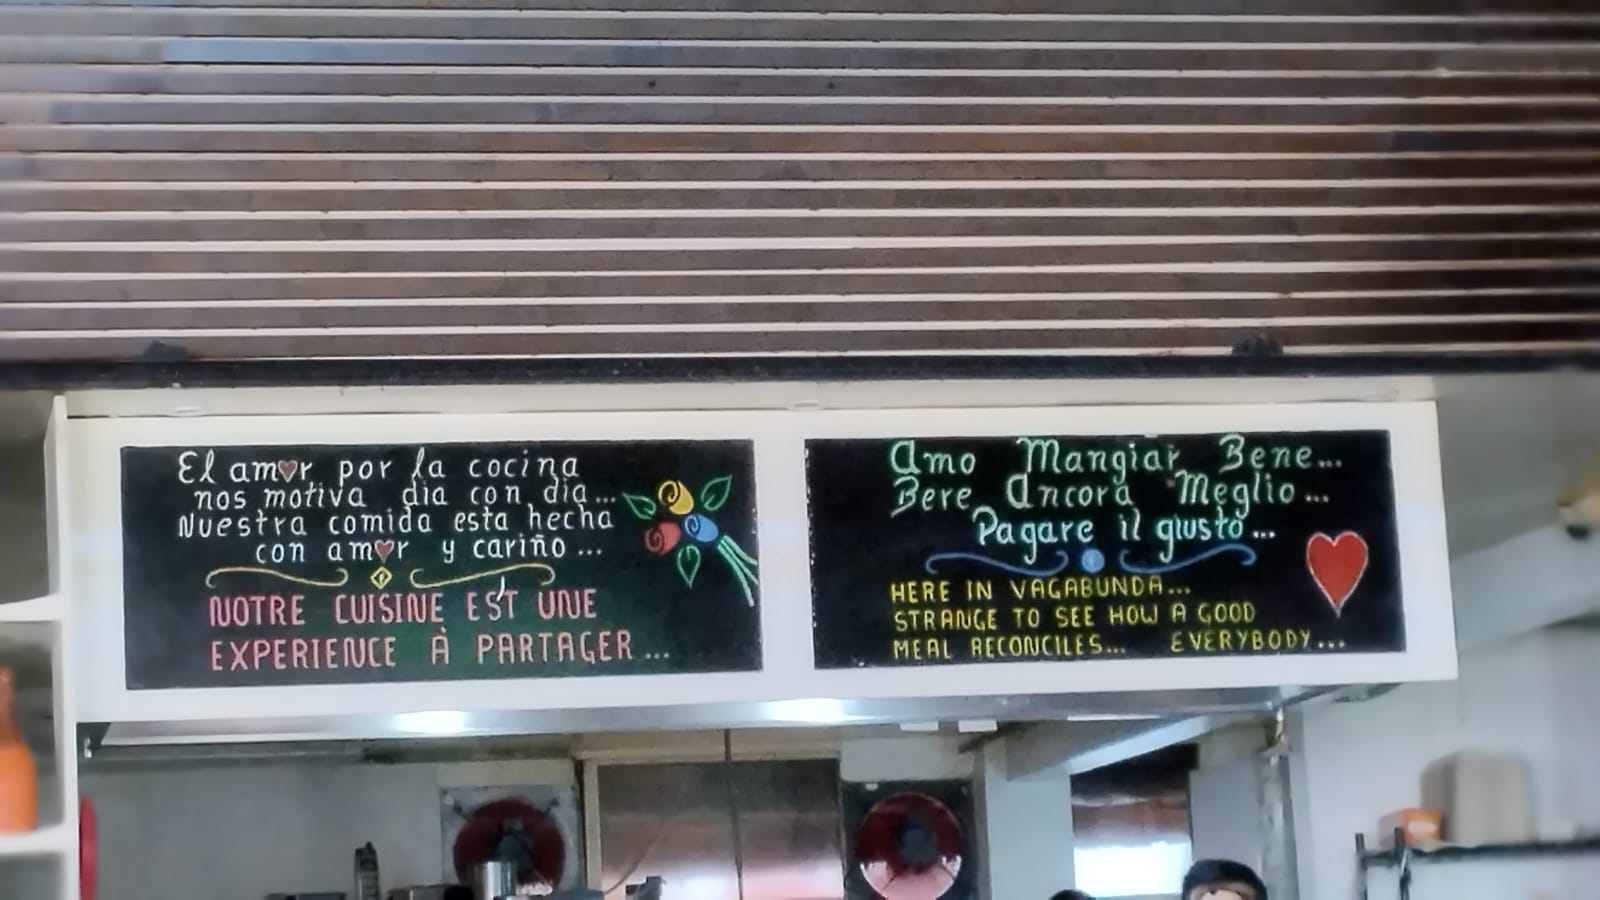 El amor por la cocina
nos motiva dia con dia...
Nuestra comida esta hecha
con amor y cariño...
NOTRE CUISINE EST UNE
EXPERIENCE À PARTAGER...
Amo Mangiar Bene...
Bere Ancora Meglio...
Pagare il giusto...
HERE IN VAGABUNDA...
STRANGE TO SEE HOW A GOOD
MEAL RECONCILES... EVERYBODY...